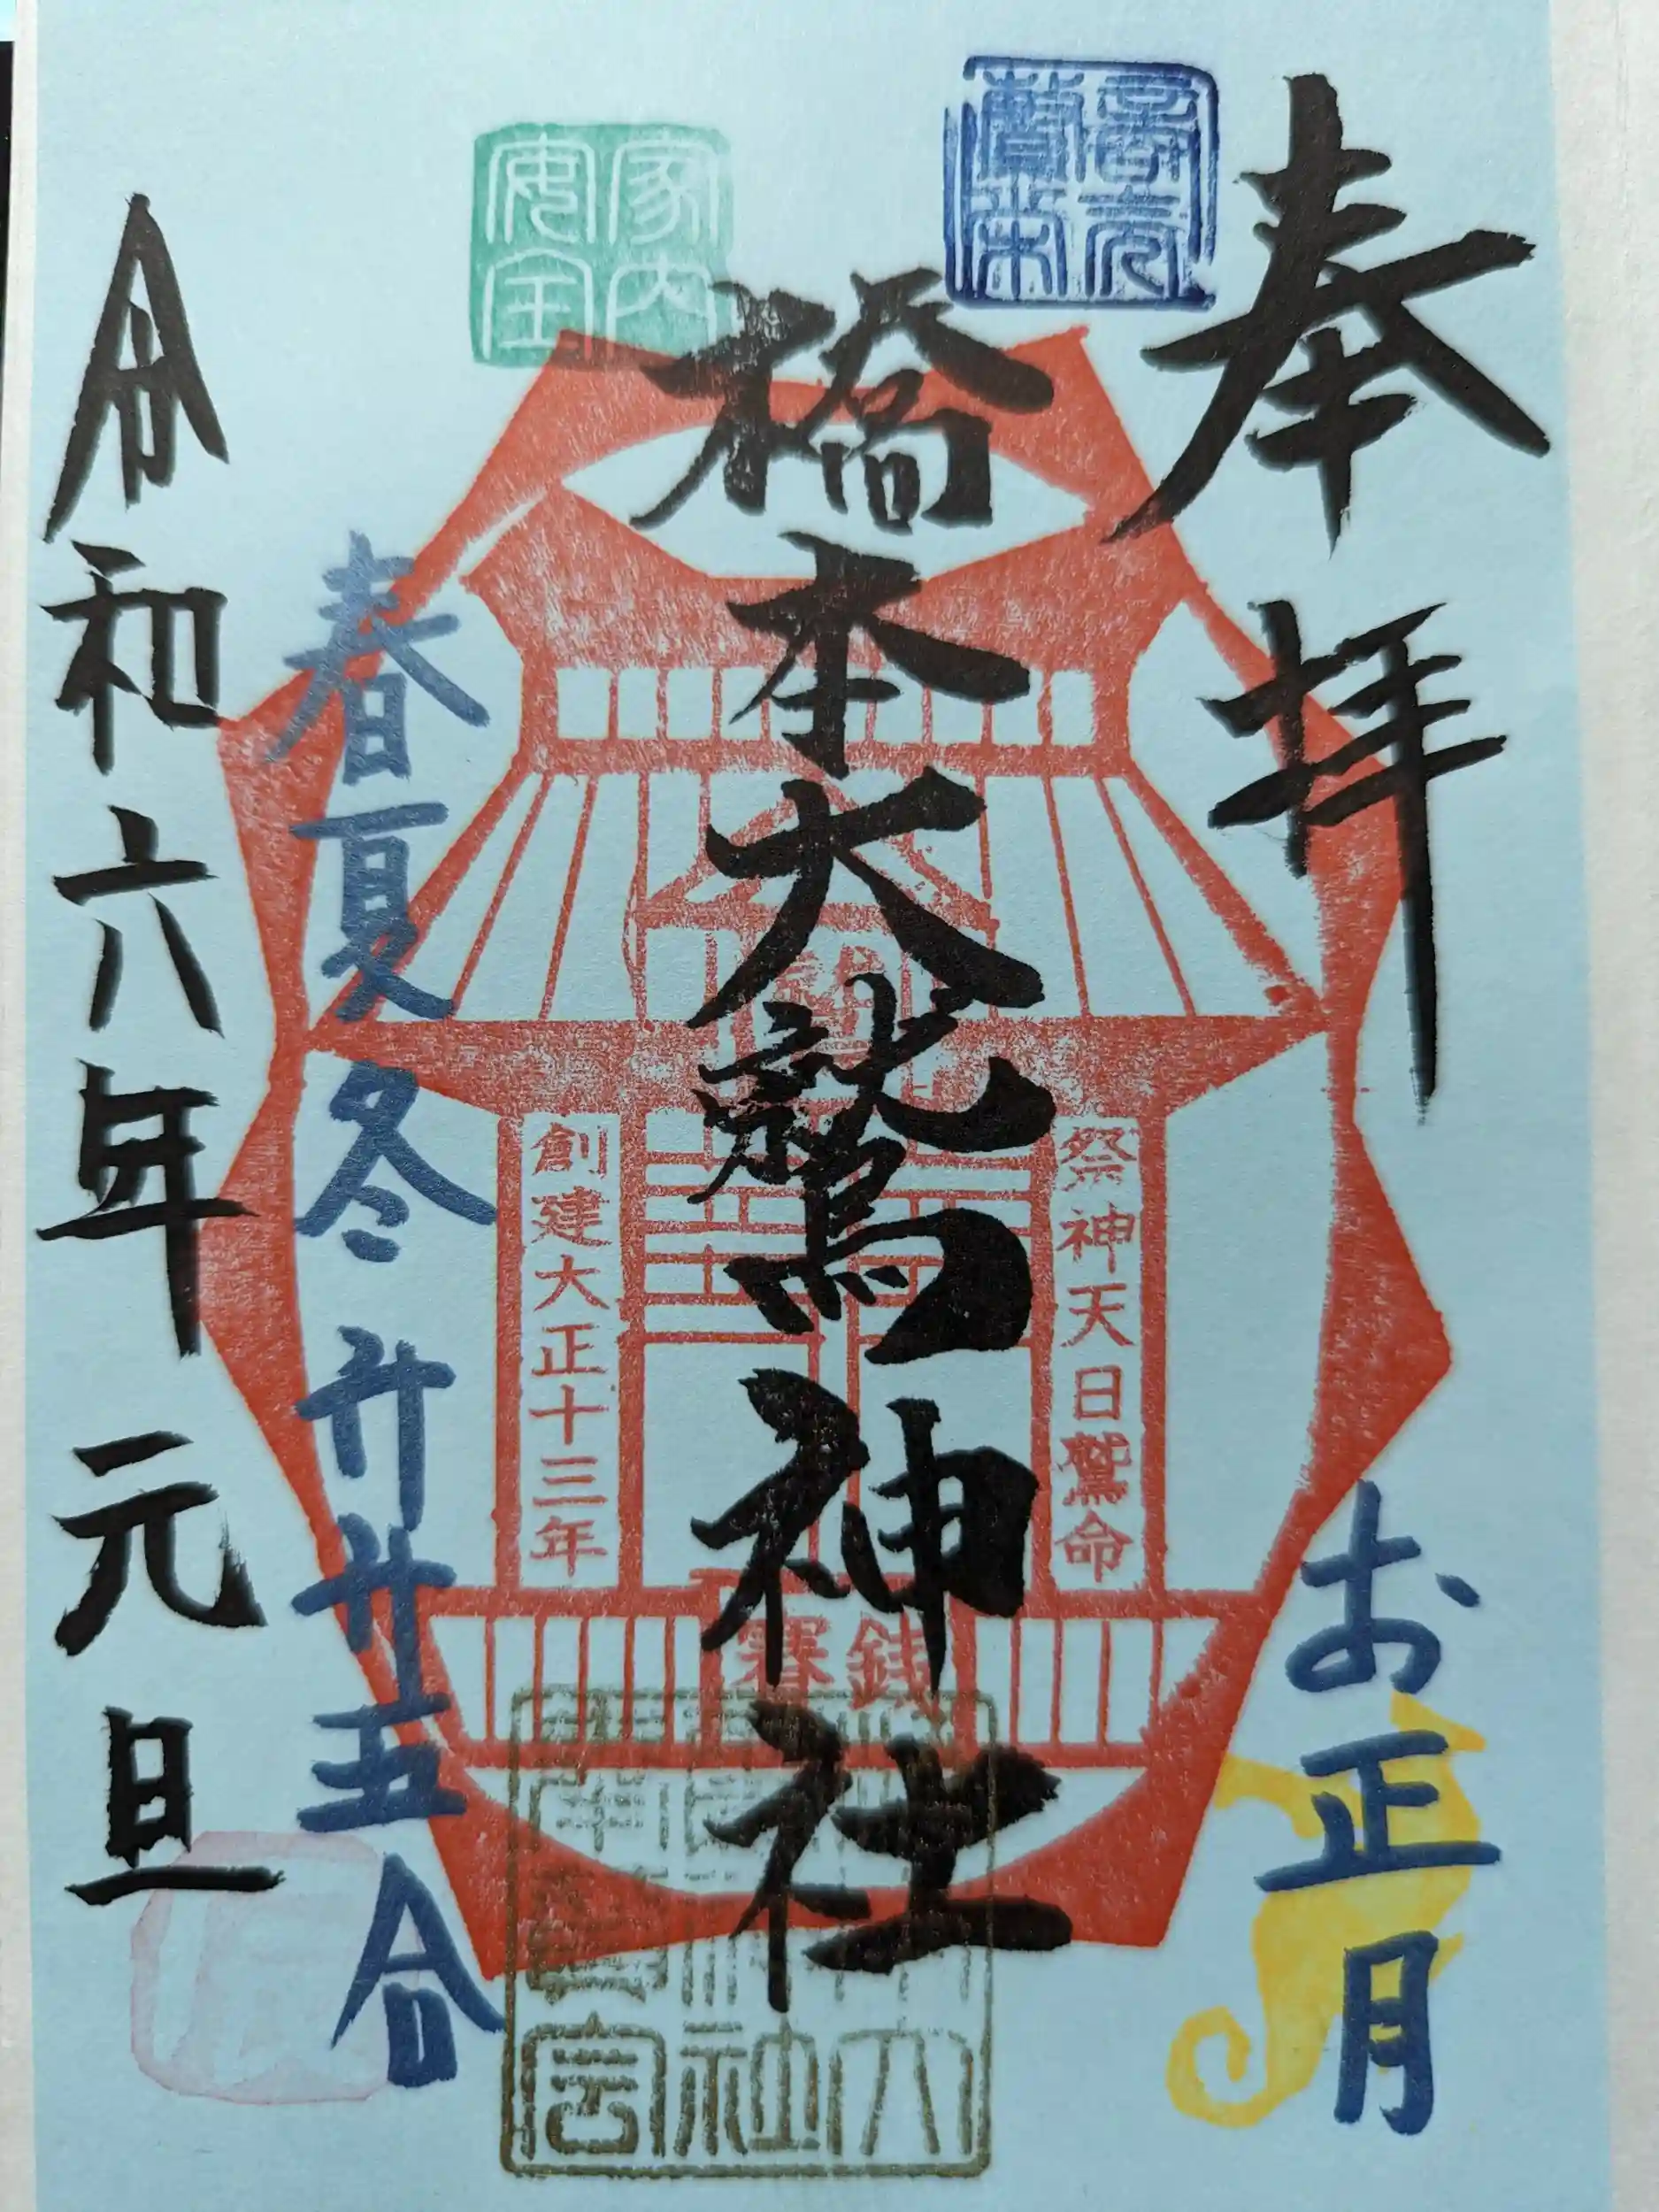 奉拝
お正月
商売繁栄
橋本大鷲神社
祭神天日鷲命
賽銭
創建大正十三年
家内安全
春夏冬 升升五合
令和六年 元旦